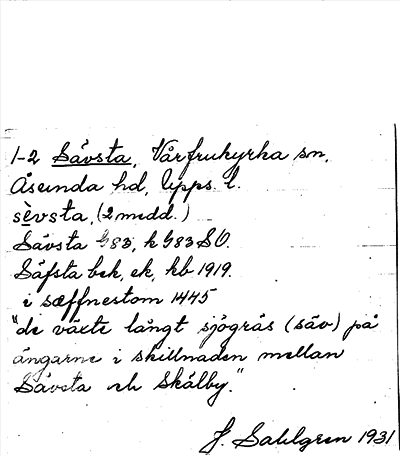 1-2 Sävsta, Vårfrukyrka sn,
Åsunda hd, Upps. l.
sèvsta, (2 medd.)
Sävsta G83, k G83 SO.
Säfsta bek, ek, kb 1919.
i sæffnestom 1445
"de växte långt sjögräs (säv) på
ängarne i skillnaden mellan
Sävsta och Skälby."
J. Sahlgren 1931